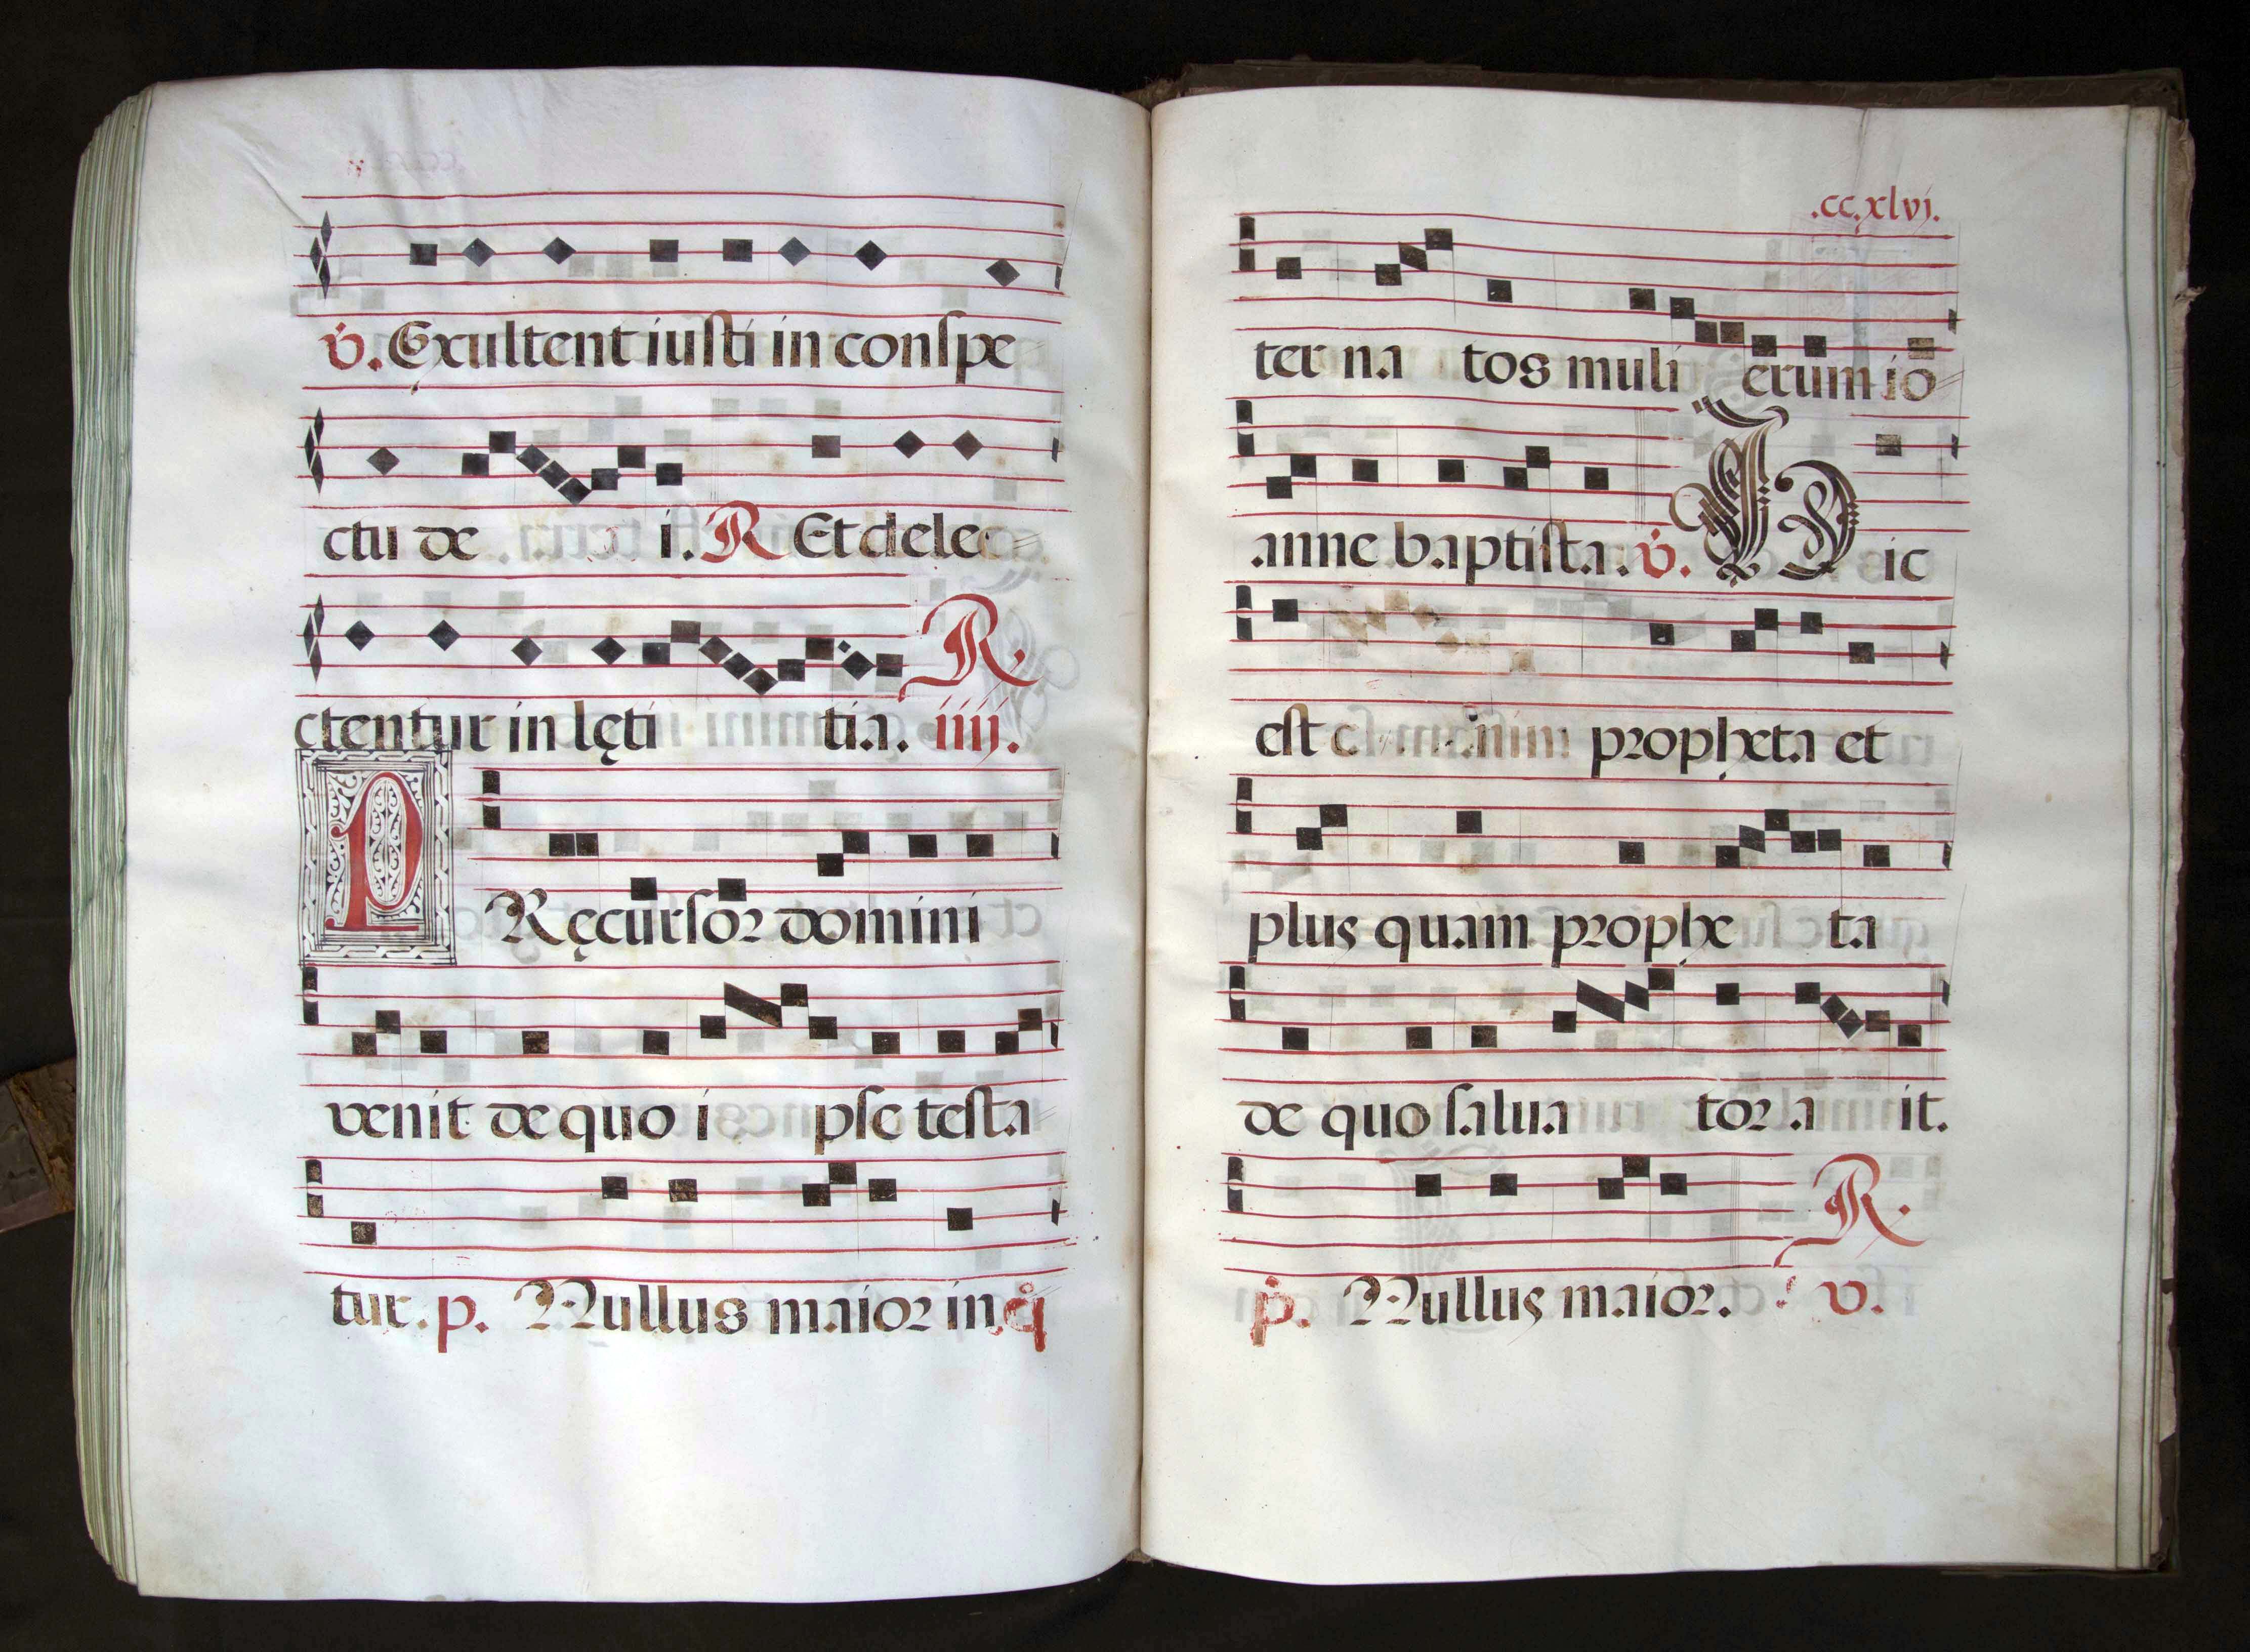 v. Exultent iusti in conspe
ctu de i. R Et dele
ctentur in lęti tia. R. iiij.
PRęcursor domini
venit de quo i pse testa
tur. p. Nullus maior in
.cc.xlvj.
ter na tos muli erum io
anne baptista. v. Hic
est propheta et
plus quam prophe ta
de quo salua tor a it.
p. Nullus maior. R. v.